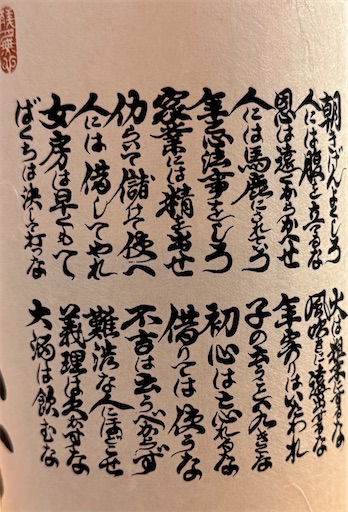 朝きげんよくしろ
人には腹を立てるな
恩は遠くからかへせ
人には馬鹿にされていろ
年忌法事をしろ
家業には精を出せ
仂らいて儲けて使へ
人には借してやれ
女房は早くもて
ばくちは決して打つな
火は粗末にするな
風吹きに遠出するな
年寄りはいたわれ
子の云うこと八九きくな
初心は忘れるな
借りては使うな
不吉は云うべからず
難渋な人にほどこせ
義理は欠かすな
大酒は飲むな